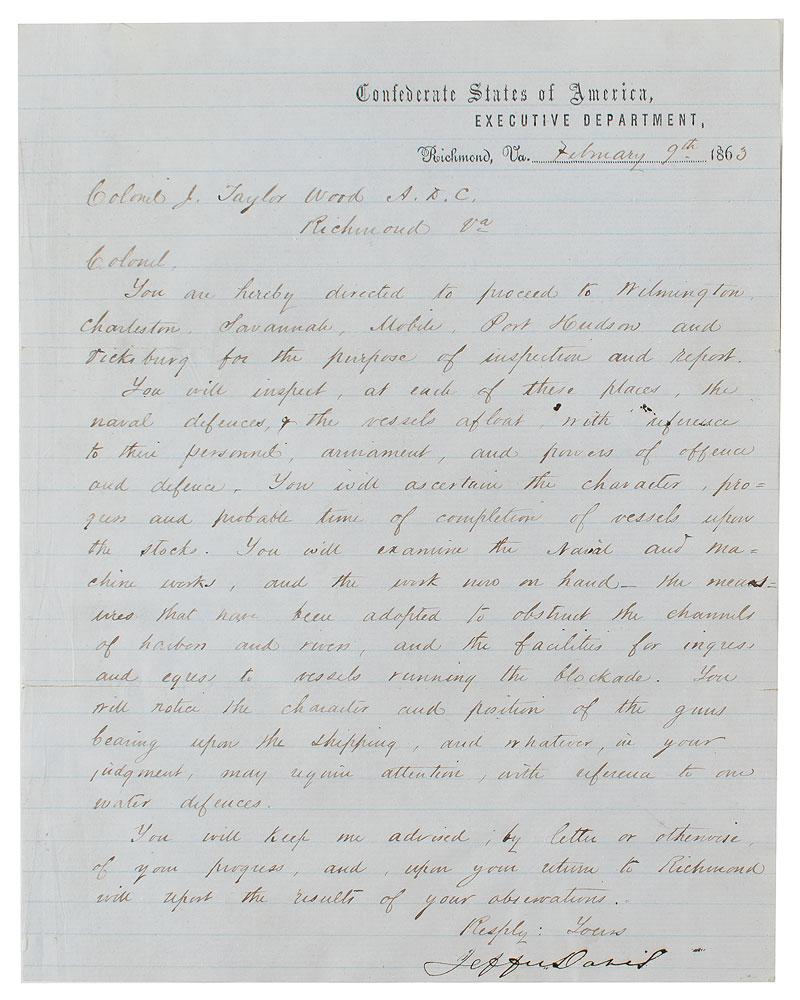 Confederate States of America,
EXECUTIVE DEPARTMENT,
Richmond, Va. February 9th 1863
Colonel J. Taylor Wood A. D. C.
Richmond Va
Colonel,
You are hereby directed to proceed to Wilmington,
Charleston, Savannah, Mobile, Port Hudson and
Vicksburg for the purpose of inspection and report.
You will inspect, at each of these places, the
naval defences, & the vessels afloat, with reference
to their personnel, armament, and powers of offence
and defence. You will ascertain the character, pro=
gress and probable time of completion of vessels upon
the stocks. You will examine the Naval and ma=
chine works, and the work now on hand – the meas=
ures that have been adopted to obstruct the channels
of harbors and rivers, and the facilities for ingress
and egress to vessels running the blockade. You
will notice the character and position of the guns
bearing upon the shipping, and whatever, in your
judgment, may require attention, with reference to our
water defences.
You will keep me advised, by letter or otherwise,
of your progress, and, upon your return to Richmond
will report the results of your observations.
Resply: Yours
Jeffn Davis